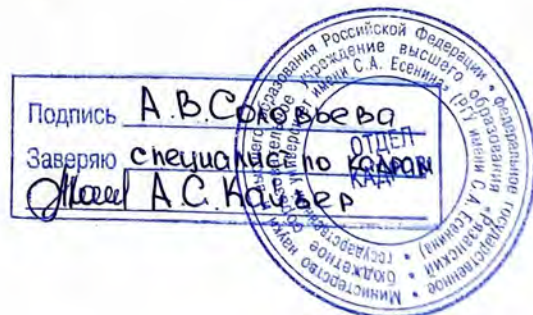 Подпись А.В.Соловьева
Заверяю специалист по кадрам
А.С. Кайзер
ОТДЕЛ
КАДРОВ
Министерство науки и высшего образования Российской Федерации • Федеральное государственное
бюджетное образовательное учреждение высшего образования «Рязанский
государственный университет имени С.А. Есенина» (РГУ имени С.А. Есенина) •